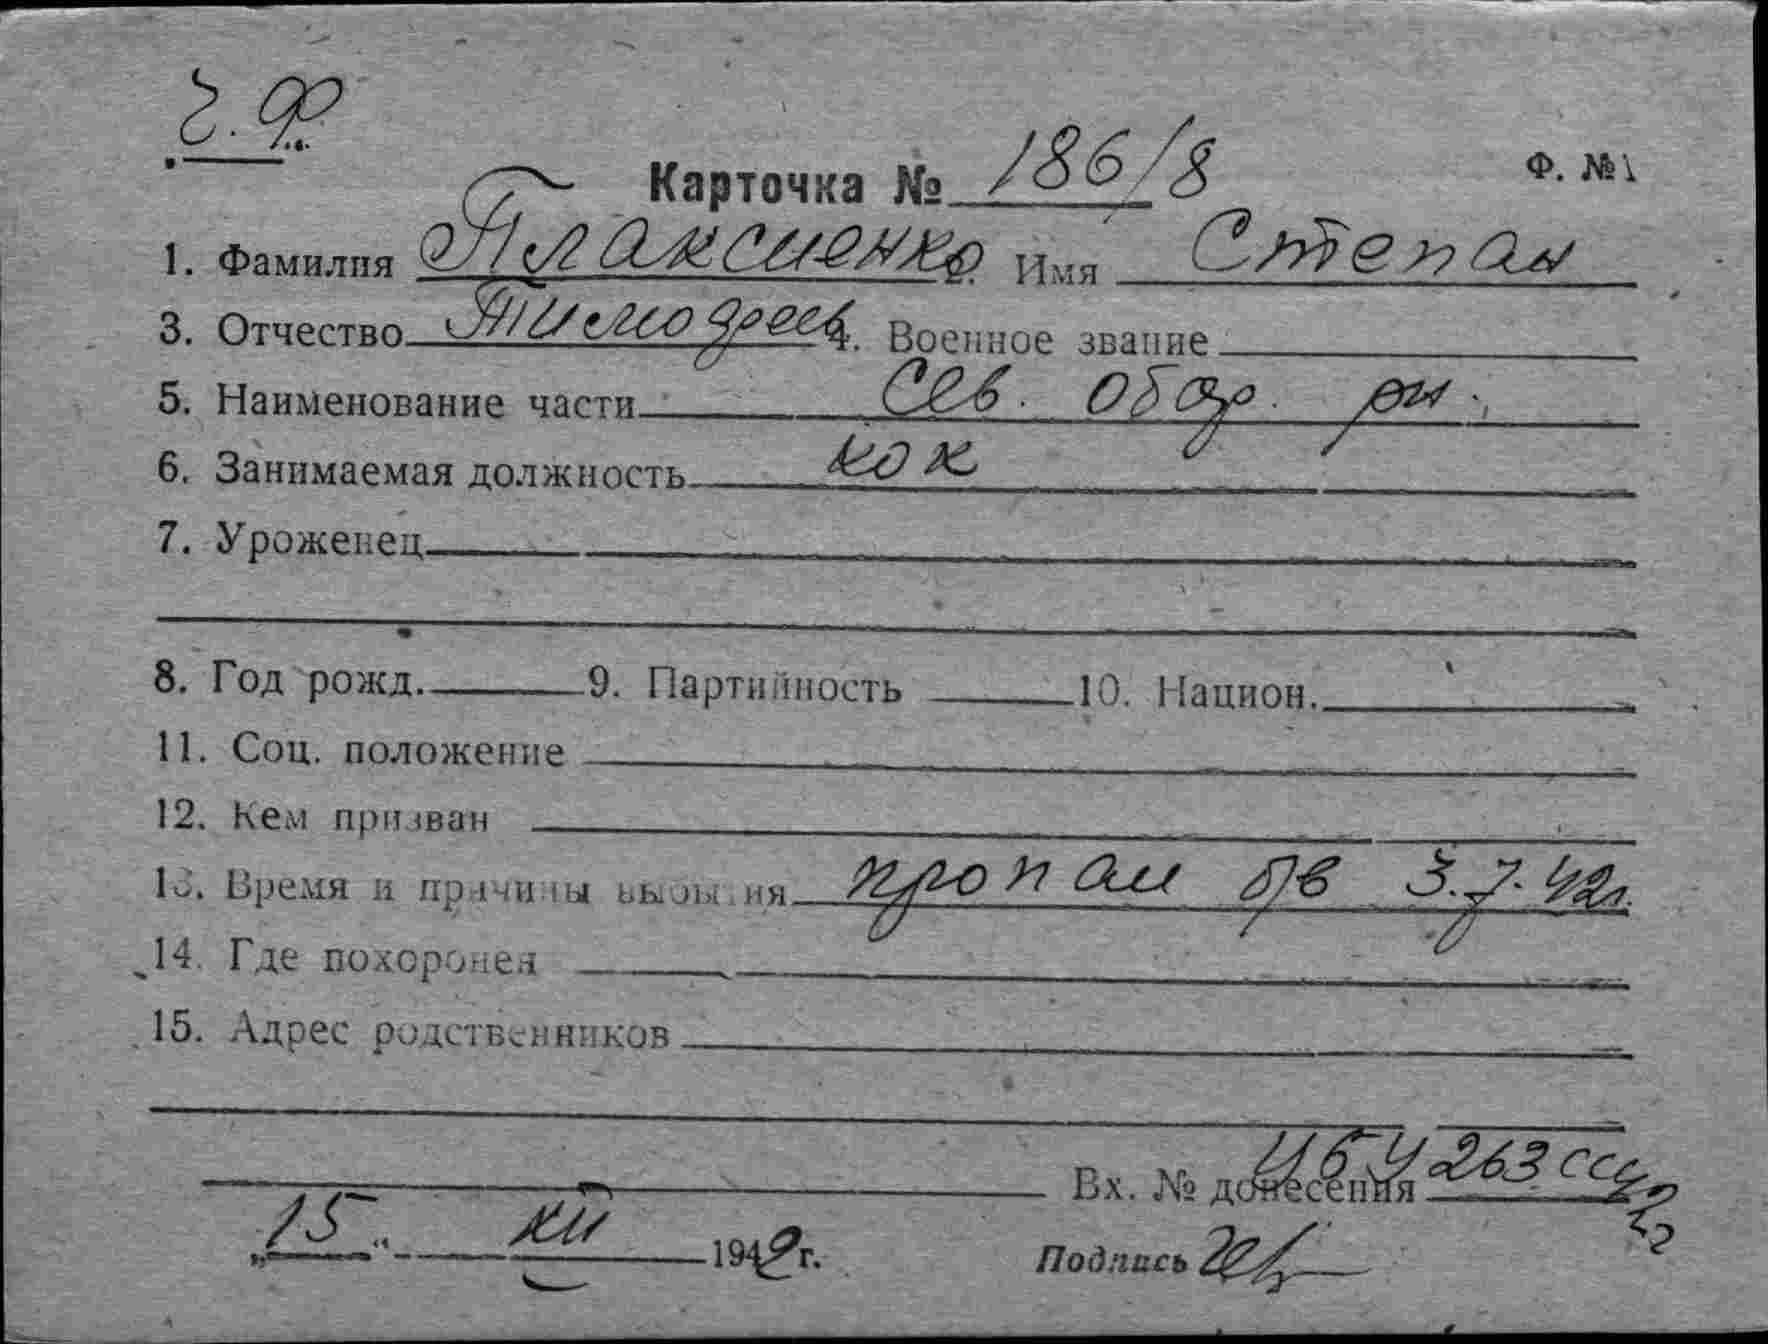 Ч.Ф.
Карточка № 186/8 Ф. №1
1. Фамилия Плаксиенко 2. Имя Степан
3. Отчество Тимофеев 4. Военное звание
5. Наименование части Сев. обор. рн.
6. Занимаемая должность кок
7. Уроженец
8. Год рожд. 9. Партийность 10. Национ.
11. Соц. положение
12. Кем призван
13. Время и причины выбытия пропал б/в 3.7.42г.
14. Где похоронен
15. Адрес родственников
Вх. № донесения 263
„15" XII 1942г. Подпись